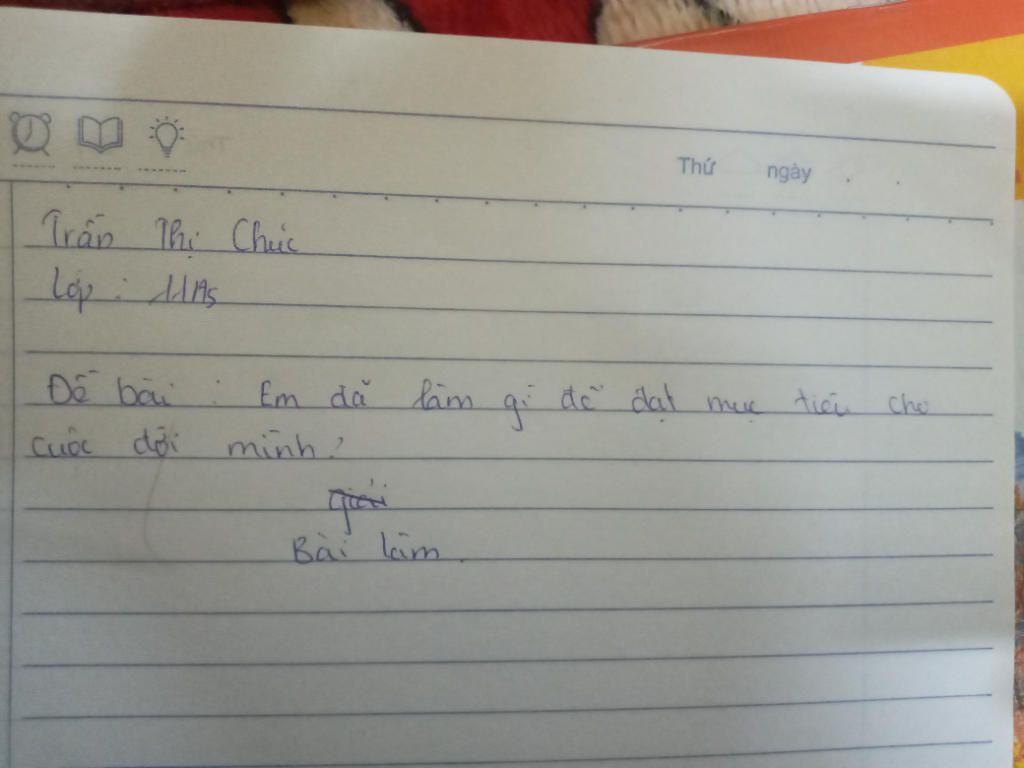 Thứ ngày
Trần Thị Chúc
Lớp : 11A5
Đề bài : Em đã làm gì để đạt mục tiêu cho
cuộc đời mình?
giải
Bài làm.